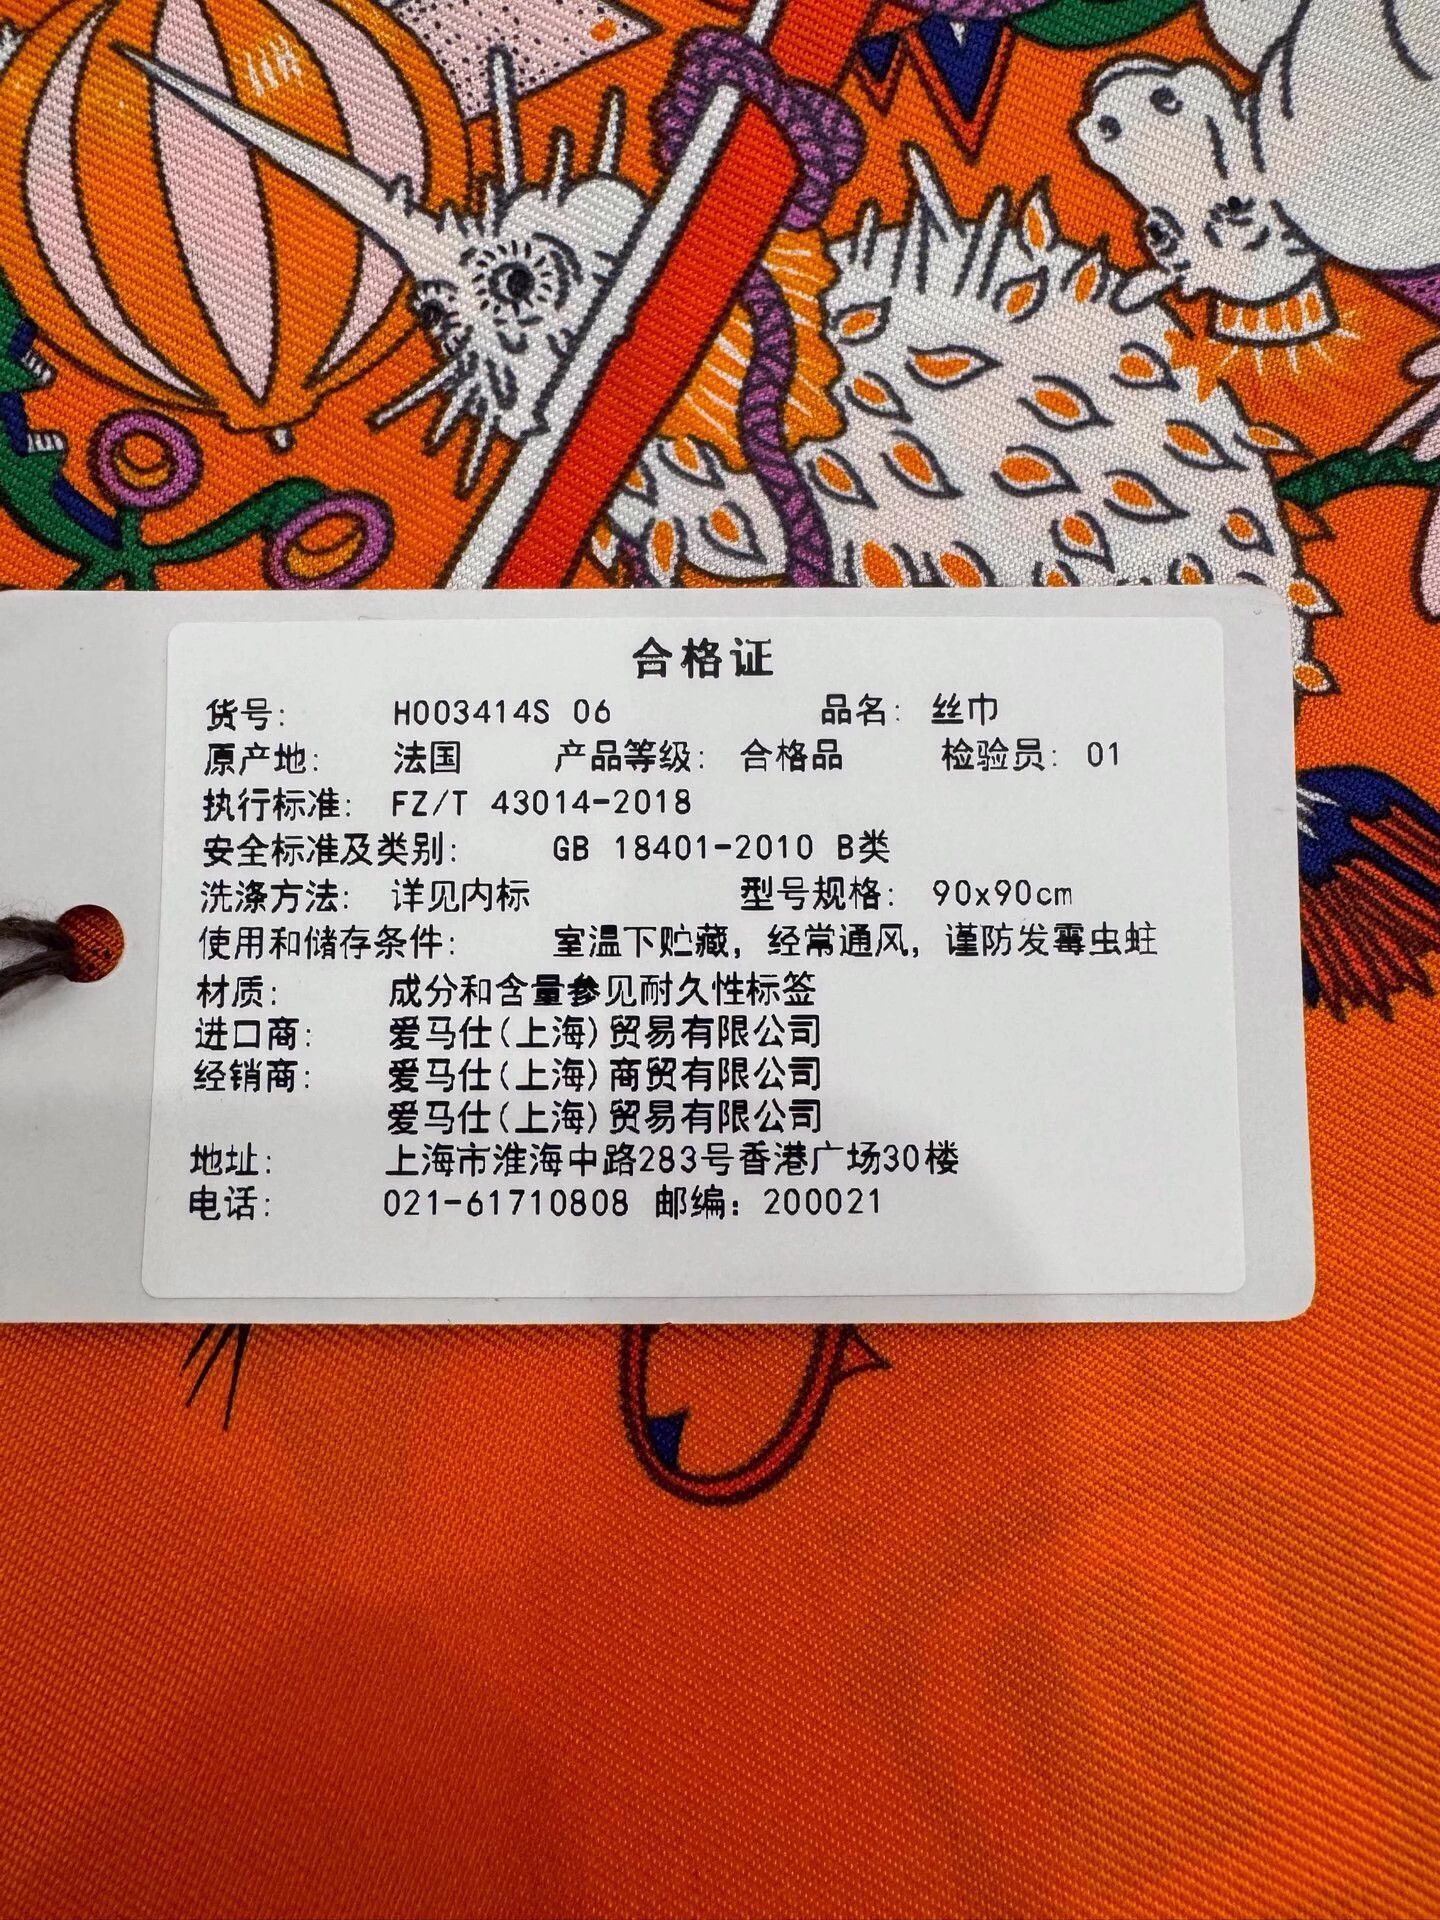 合格证
货号: H003414S 06 品名: 丝巾
原产地: 法国 产品等级: 合格品 检验员: 01
执行标准: FZ/T 43014-2018
安全标准及类别: GB 18401-2010 B类
洗涤方法: 详见内标 型号规格: 90x90cm
使用和储存条件: 室温下贮藏, 经常通风, 谨防发霉虫蛀
材质: 成分和含量参见耐久性标签
进口商: 爱马仕(上海)贸易有限公司
经销商: 爱马仕(上海)商贸有限公司
爱马仕(上海)贸易有限公司
地址: 上海市淮海中路283号香港广场30楼
电话: 021-61710808 邮编: 200021